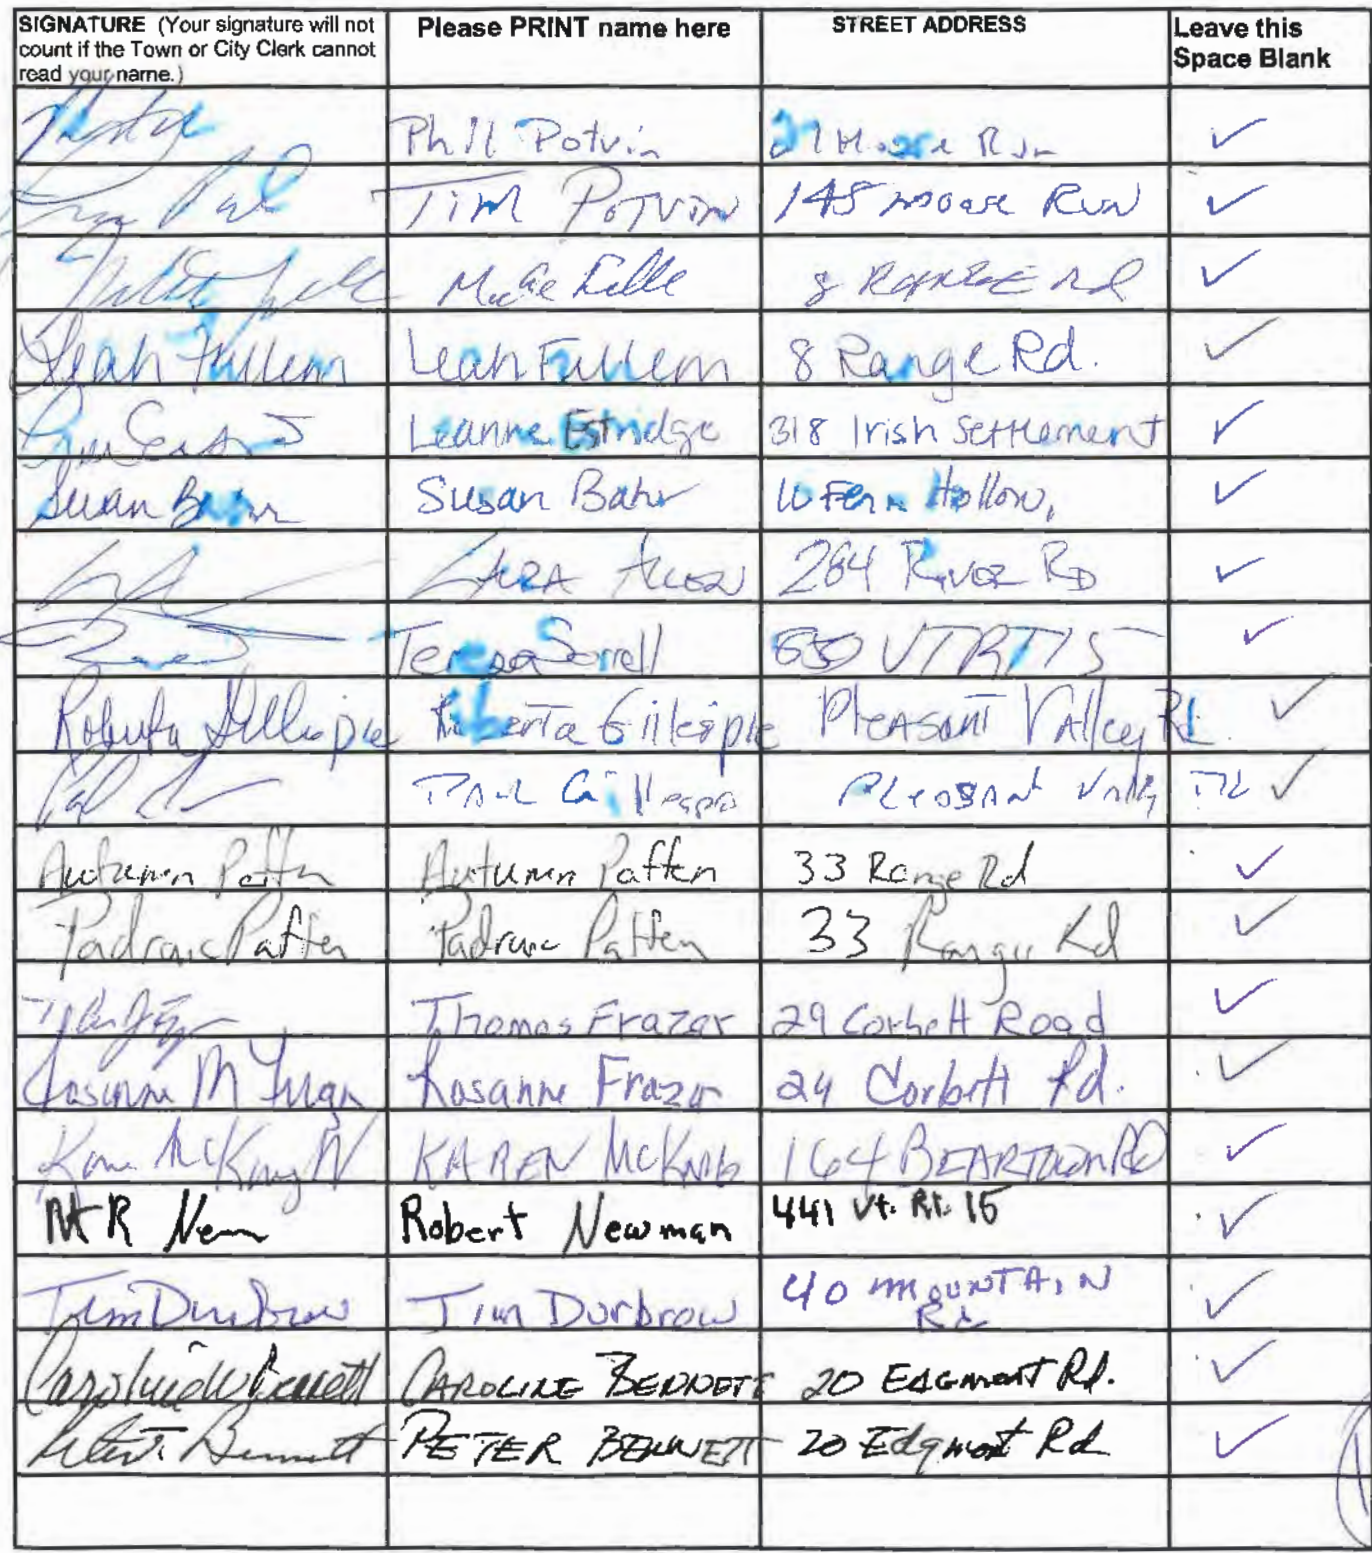 SIGNATURE (Your signature will not count if the Town or City Clerk cannot read your name.) Please PRINT name here STREET ADDRESS Leave this Space Blank
Phil Potvin 21 Moose Run ✓
Tim Potvin 145 Moose Run ✓
8 Range Rd ✓
Leah Fullem Leah Fullem 8 Range Rd. ✓
Leanne Estridge 318 Irish Settlement ✓
Susan Bahr Susan Bahr 10 Fern Hollow, ✓
Allen 284 River Rd ✓
Teresa Sorrell 650 VT RT 15 ✓
Roberta Gillespie Roberta Gillespie Pleasant Valley Rd. ✓
Paul Gillespie Pleasant Valley Rd ✓
Autumn Patten Autumn Patten 33 Range Rd ✓
Padraic Patten Padraic Patten 33 Range Rd ✓
Thomas Frazar 29 Corbett Road ✓
Rosanne M Rosanne Frazar 29 Corbett Rd. ✓
Karen McKnight Karen McKnig 164 Beartown Rd ✓
Robert Newman 441 Vt. Rt. 15 ✓
Tim Durbrow Tim Durbrow 40 Mountain Rd ✓
Caroline W Bennett Caroline Bennett 20 Edgmont Rd. ✓
Peter Bennett Peter Bennett 20 Edgmont Rd ✓